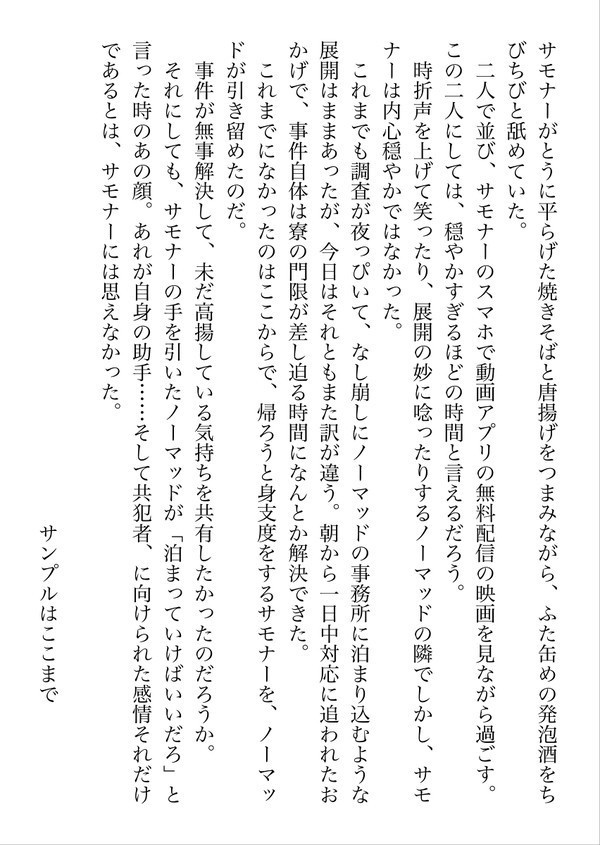 サモナーがとうに平らげた焼きそばと唐揚げをつまみながら、ふた缶めの発泡酒をち
びちびと舐めていた。
　二人で並び、サモナーのスマホで動画アプリの無料配信の映画を見ながら過ごす。
この二人にしては、穏やかすぎるほどの時間と言えるだろう。
　時折声を上げて笑ったり、展開の妙に唸ったりするノーマッドの隣でしかし、サモ
ナーは内心穏やかではなかった。
　これまでも調査が夜っぴいて、なし崩しにノーマッドの事務所に泊まり込むような
展開はままあったが、今日はそれともまた訳が違う。朝から一日中対応に追われたお
かげで、事件自体は寮の門限が差し迫る時間になんとか解決できた。
　これまでになかったのはここからで、帰ろうと身支度をするサモナーを、ノーマッ
ドが引き留めたのだ。
　事件が無事解決して、未だ高揚している気持ちを共有したかったのだろうか。
　それにしても、サモナーの手を引いたノーマッドが「泊まっていけばいいだろ」と
言った時のあの顔。あれが自身の助手……そして共犯者、に向けられた感情それだけ
であるとは、サモナーには思えなかった。
サンプルはここまで